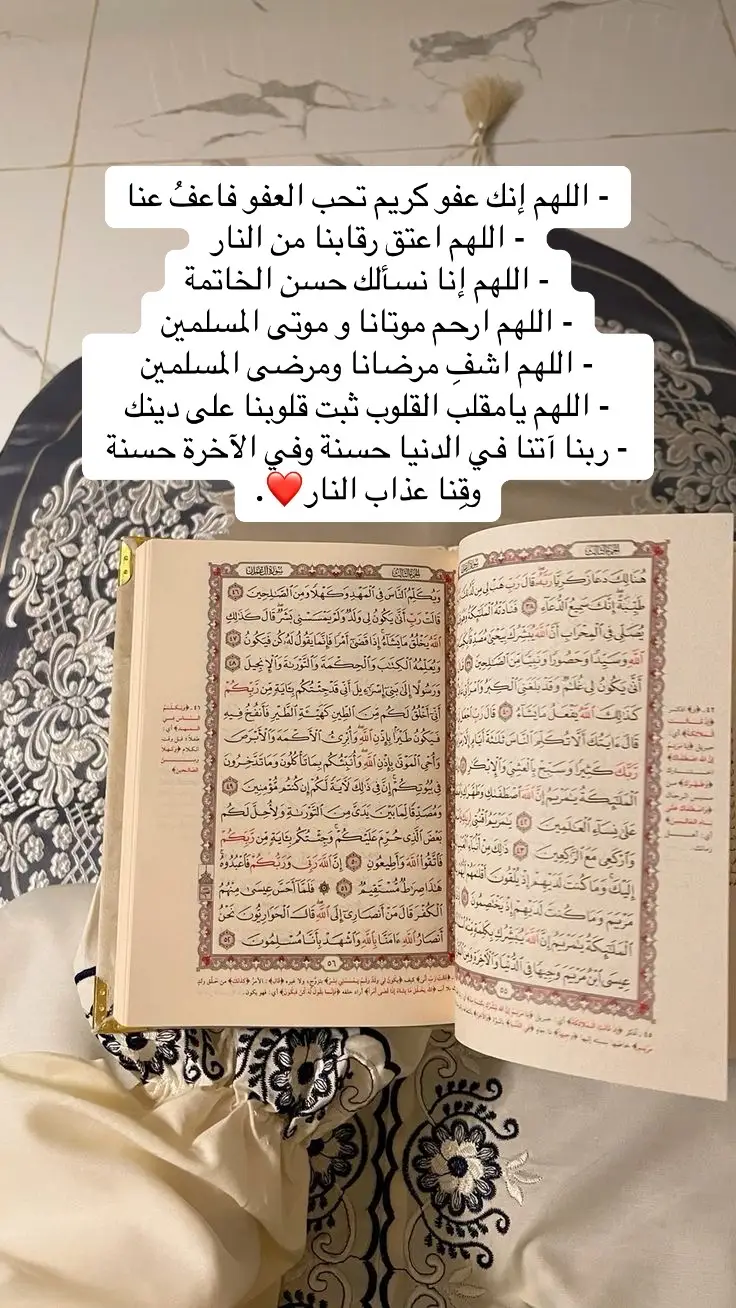 - اللهم إنك عفو كريم تحب العفو فاعفُ عنا
- اللهم اعتق رقابنا من النار
- اللهم إنا نسألك حسن الخاتمة
- اللهم ارحم موتانا و موتى المسلمين
- اللهم اشفِ مرضانا ومرضى المسلمين
- اللهم يامقلب القلوب ثبت قلوبنا على دينك
- ربنا آتنا في الدنيا حسنة وفي الآخرة حسنة
وقِنا عذاب النار❤️.
الجزء الثالث
هُنَالِكَ دَعَا زَكَرِيَّا رَبَّهُۥ قَالَ رَبِّ هَبْ لِى مِن لَّدُنكَ
طَيِّبَةً إِنَّكَ سَمِيعُ ٱلدُّعَآءِ ٣٨ فَنَادَتْهُ ٱلْمَلَٰٓئِكَةُ
يُصَلِّى فِى ٱلْمِحْرَابِ أَنَّ ٱللَّهَ يُبَشِّرُكَ بِيَحْيَىٰ مُصَدِّقًۢا
ٱللَّهِ وَسَيِّدًا وَحَصُورًا وَنَبِيًّا مِّنَ ٱلصَّٰلِحِينَ
أَنَّىٰ يَكُونُ لِى غُلَٰمٌ وَقَدْ بَلَغَنِىَ ٱلْكِبَرُ وَٱمْرَأَتِى
كَذَٰلِكَ ٱللَّهُ يَفْعَلُ مَا يَشَآءُ ٤٠ قَالَ رَبِّ ٱجْعَل
قَالَ ءَايَتُكَ أَلَّا تُكَلِّمَ ٱلنَّاسَ ثَلَٰثَةَ أَيَّامٍ إِلَّا
رَّبَّكَ كَثِيرًا وَسَبِّحْ بِٱلْعَشِىِّ وَٱلْإِبْكَٰرِ
ٱلْمَلَٰٓئِكَةُ يَٰمَرْيَمُ إِنَّ ٱللَّهَ ٱصْطَفَىٰكِ وَطَهَّرَكِ
عَلَىٰ نِسَآءِ ٱلْعَٰلَمِينَ ٤٢ يَٰمَرْيَمُ ٱقْنُتِى
وَٱرْكَعِى مَعَ ٱلرَّٰكِعِينَ ٤٣ ذَٰلِكَ مِنْ أَنۢبَآءِ
إِلَيْكَ وَمَا كُنتَ لَدَيْهِمْ إِذْ يُلْقُونَ أَقْلَٰمَهُمْ
مَرْيَمَ وَمَا كُنتَ لَدَيْهِمْ إِذْ يَخْتَصِمُونَ
ٱلْمَلَٰٓئِكَةُ يَٰمَرْيَمُ إِنَّ ٱللَّهَ يُبَشِّرُكِ بِكَلِمَةٍ مِّنْهُ
عِيسَى ٱبْنُ مَرْيَمَ وَجِيهًا فِى ٱلدُّنْيَا وَٱلْءَاخِرَةِ وَمِنَ
٥٥
الجزء الثالث سورة آل عمران
وَيُكَلِّمُ ٱلنَّاسَ فِى ٱلْمَهْدِ وَكَهْلًا وَمِنَ ٱلصَّٰلِحِينَ ٤٦
قَالَتْ رَبِّ أَنَّىٰ يَكُونُ لِى وَلَدٌ وَلَمْ يَمْسَسْنِى بَشَرٌ قَالَ كَذَٰلِكِ
ٱللَّهُ يَخْلُقُ مَا يَشَآءُ إِذَا قَضَىٰٓ أَمْرًا فَإِنَّمَا يَقُولُ لَهُۥ كُن فَيَكُونُ ٤٧
وَيُعَلِّمُهُ ٱلْكِتَٰبَ وَٱلْحِكْمَةَ وَٱلتَّوْرَىٰةَ وَٱلْإِنجِيلَ ٤٨
وَرَسُولًا إِلَىٰ بَنِىٓ إِسْرَٰٓءِيلَ أَنِّى قَدْ جِئْتُكُم بِـَٔايَةٍ مِّن رَّبِّكُمْ
أَنِّىٓ أَخْلُقُ لَكُم مِّنَ ٱلطِّينِ كَهَيْـَٔةِ ٱلطَّيْرِ فَأَنفُخُ فِيهِ
فَيَكُونُ طَيْرًۢا بِإِذْنِ ٱللَّهِ وَأُبْرِئُ ٱلْأَكْمَهَ وَٱلْأَبْرَصَ
وَأُحْىِ ٱلْمَوْتَىٰ بِإِذْنِ ٱللَّهِ وَأُنَبِّئُكُم بِمَا تَأْكُلُونَ وَمَا تَدَّخِرُونَ
فِى بُيُوتِكُمْ إِنَّ فِى ذَٰلِكَ لَءَايَةً لَّكُمْ إِن كُنتُم مُّؤْمِنِينَ ٤٩
وَمُصَدِّقًا لِّمَا بَيْنَ يَدَىَّ مِنَ ٱلتَّوْرَىٰةِ وَلِأُحِلَّ لَكُم
بَعْضَ ٱلَّذِى حُرِّمَ عَلَيْكُمْ وَجِئْتُكُم بِـَٔايَةٍ مِّن رَّبِّكُمْ
فَٱتَّقُوا۟ ٱللَّهَ وَأَطِيعُونِ ٥٠ إِنَّ ٱللَّهَ رَبِّى وَرَبُّكُمْ فَٱعْبُدُوهُ
هَٰذَا صِرَٰطٌ مُّسْتَقِيمٌ ٥١ ۞ فَلَمَّآ أَحَسَّ عِيسَىٰ مِنْهُمُ
ٱلْكُفْرَ قَالَ مَنْ أَنصَارِىٓ إِلَى ٱللَّهِ قَالَ ٱلْحَوَارِيُّونَ نَحْنُ
أَنصَارُ ٱللَّهِ ءَامَنَّا بِٱللَّهِ وَٱشْهَدْ بِأَنَّا مُسْلِمُونَ ٥٢
٥٦